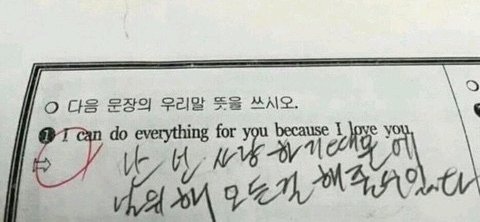 ○ 다음 문장의 우리말 뜻을 쓰시오.
❶ I can do everything for you because I love you
⇨ 난 넌 사랑하기때문에
널위해 모든걸 해줄수있따